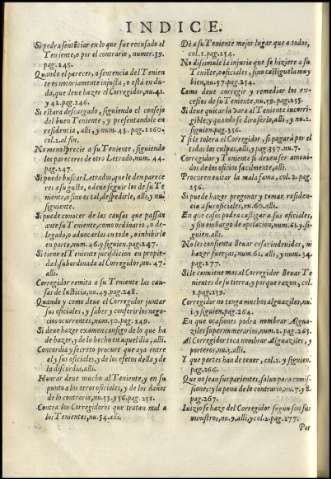 INDICE.
Si pedra sentẽciar en lo que fue recusado el
Teniente, o por el contrario, numer. 39.
pag. 245.
Quando el parecer, a sentencia del Tenien
te es notoriamente injusta, o està en du-
da, que deue hazer el Corregidor, nu. 41.
y 42. pag. 246.
Si estarà descargado, siguiendo el consejo
del buen Teniente, y presentandole en
residencia, alli, y num. 43. pag. 1160.
col. 2. al fin.
No menosprecie a su Teniente, siguiendo
los pareceres de otro Letrado, num. 44.
pag. 247.
Si puede buscar Letrados, que le den parece-
res a su gusto, o deue seguir los de su Te
niente, a sino es tal, despedirle, allo, y nu.
siguiente.
Si puede conocer de las causas que passan
ante su Teniente, como ordinario, o de-
legado, o aduocarlas en todo, o embiarle
en parte, num. 46. y siguien. pag. 247.
Si tiene el Teniente juridicion en propie-
dad subordinada al Corregidor, nu. 47.
alli.
Corregidor remita a su Teniente las cau-
sas de Iusticia, nu. 49. pag. 248.
Quando y como deue el Corregidor juntar
sus oficiales, y saber y conferir los nego-
cios ocurrentes, num. 50. pag. 249.
Si deue hazer examen consigo de lo que ha
de hazer, y de lo hecho en aquel dia, alli.
Concordia y secreto procure que aya entre
el y sus oficiales, y de los efetos della y de
la discordia, alli.
Honrar deue mucho al Teniente, y en su
punto a los otros oficiales, y de los daños
de lo contrario, nu. 53. y 56. pag. 251.
Contra los Corregidores que tratan mal a
los Tenientes, nu. 54. alli.
Dè a su Teniente mejor lugar que a todos,
col. 1. pag. 254.
No dissimule la injuria que se hiziere a su
Teniente, o oficiales, sino castiguela muy
bien, nu. 57. pag. 254.
Como deue corregir y remediar los ex-
cessos de su Teniente, nu. 59. pag. 255.
Si deue quitar la vara al Teniente incorri-
gible: y quando se dira serlo, alli, y nu. 2.
siguien. pag. 356.
Y si le tolera el Corregidor, si pagarà por el
todas las culpas, alli, y pag. 357. nu. 7.
Corregidor y Teniente si deuen ser amoui-
dos de los oficios facilmente, alli.
Procure euitar la mala fama, col. 2. pag.
256.
Si puede hazer pregonar y tomar residen-
cia a sus oficiales, nu. 60, alli.
En que casos podrà castigar a sus oficiales,
y sin embargo de apelacion, num. 61. y si-
guien. alli.
No les consienta lleuar cosas indeuidas, ni
hazer fuerças, num. 62. alli, y num. 34.
pag. 277.
Si le conuiene mas al Corregidor lleuar Te
nientes de su tierra, y porque razon, col.
1. pag. 273.
Corregidor no tenga muchos alguaziles, nu.
1. y 3. siguien. pag. 264.
En que ocasiones podrà nombrar Algua-
ziles fuera en numerarios, num. 2. pag. 263.
Al Corregidor toca nombrar Alguaziles, y
porteros, nu. 3. alli.
Y que partes han de tener, col. 2. y siguien.
pag. 266.
Que no sean sus parientes, saluo para comis-
siones: y la pena de lo contrario, nu. 7. y 8.
pag. 267.
Iuizio se haze del Corregidor segun son sus
ministros, nu. 9, alli, y col. 2. pag. 277.
Par